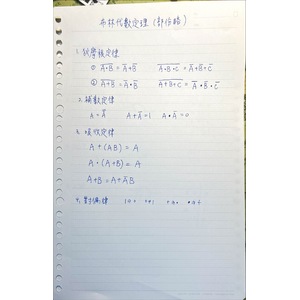 布林代數定理(部份略)
1. 狄摩根定律
① A̅·̅B̅ = A̅+B̅ A̅·̅B̅·̅C̅ = A̅+B̅+C̅
② A̅+̅B̅ = A̅·B̅ A̅+̅B̅+̅C̅ = A̅·B̅·C̅
2. 補數定律
A+A̅=1 A·A̅=0
3. 吸收定律
A+(AB) = A
A·(A+B) = A
A+B = A+A̅B
4. 對偶律